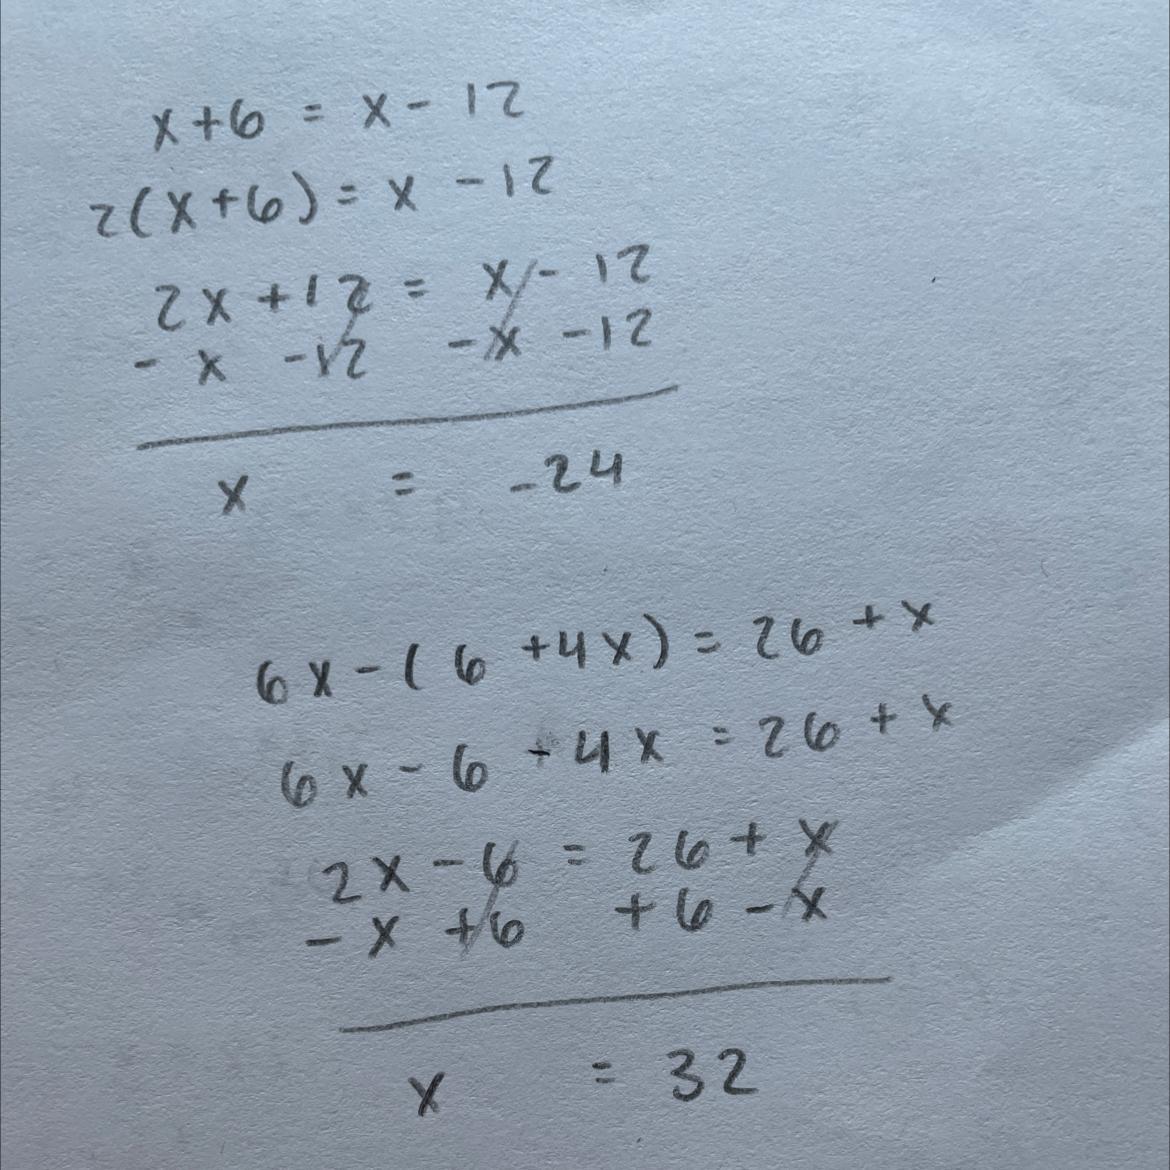 x+6 = x- 12
2(x+6) = x -12
2x +12 = x - 12
- x -12 -x -12
x = -24
6x-( 6 +4x) = 26 + x
6x - 6 - 4x = 26 + x
2x - 6 = 26 + x
- x +6 + 6 - x
x = 32